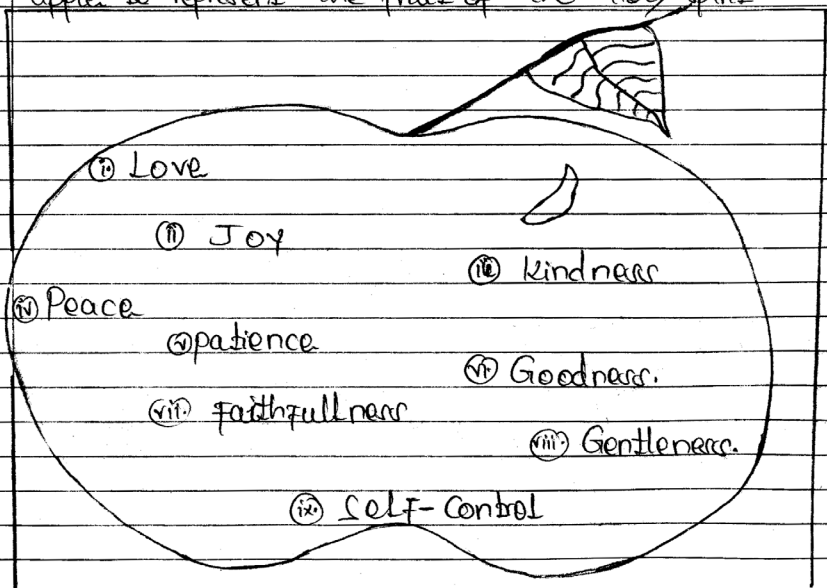 apple to represent the fruits of the Holy Spirit
(i) Love
(ii) Joy
(iii) Kindness
(iv) Peace
(v) patience
(vi) Goodness.
(vii) Faithfullness
(viii) Gentleness.
(ix) Self-Control